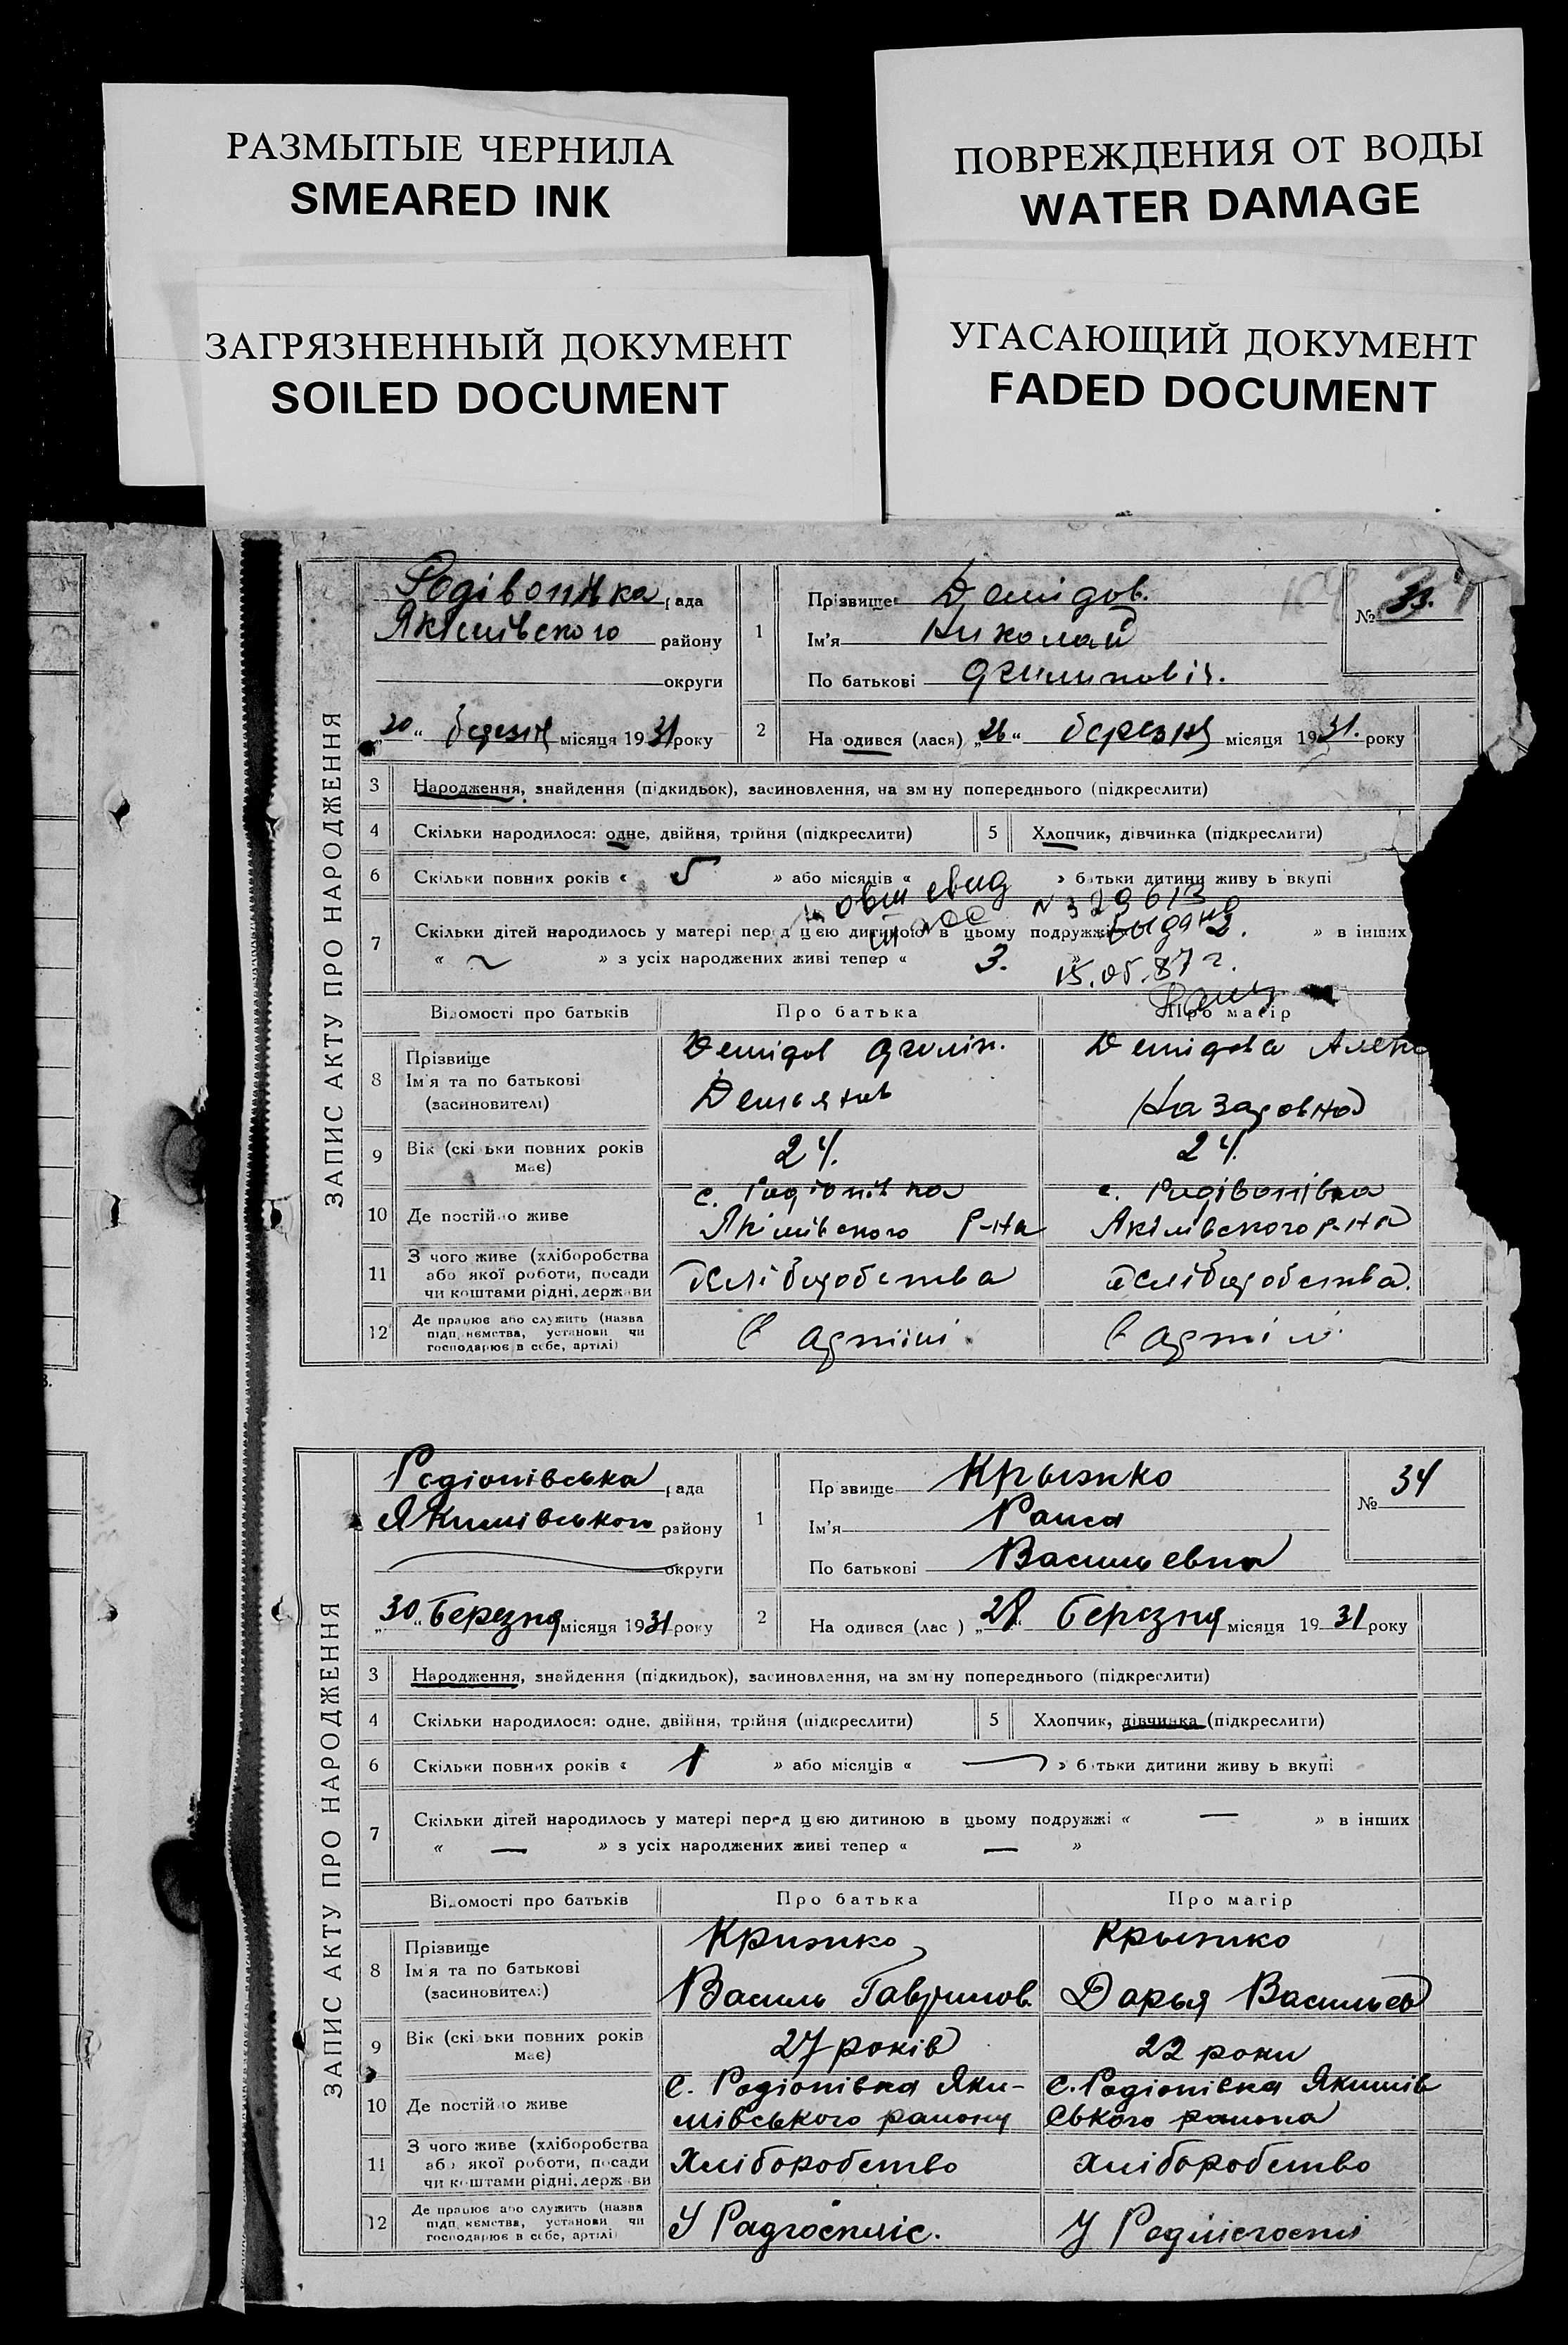 РАЗМЫТЫЕ ЧЕРНИЛА
SMEARED INK
ПОВРЕЖДЕНИЯ ОТ ВОДЫ
WATER DAMAGE
ЗАГРЯЗНЕННЫЙ ДОКУМЕНТ
SOILED DOCUMENT
УГАСАЮЩИЙ ДОКУМЕНТ
FADED DOCUMENT
ЗАПИС АКТУ ПРО НАРОДЖЕННЯ
рада
Якімівского району
округи
„20“ березня місяця 1931 року
1
Прізвище Демідов.
Ім'я Николай
По батькові
№ 33.
2
На одився (лася) „26“ березня місяця 1931. року
3 Народження, знайдення (підкидьок), засиновлення, на зм ну попереднього (підкреслити)
4 Скільки народилося: одне, двійня, трійня (підкреслити)
5 Хлопчик, дівчинка (підкреслити)
6 Скільки повних років « 5 » або місяців « » батьки дитини живу ь вкупі
N 329613
7 Скільки дітей народилось у матері перед цією дитиною в цьому подружжі 2. » в інших
« ~ » з усіх народжених живі тепер « 3. »
15.05.87 г.
Відомості про батьків Про батька Про матір
8 Прізвище
Ім'я та по батькові
(засиновителі)
Демідов
Демьянов
Демідова
Назаровна
9 Вік (скі ьки повних років має) 24. 24.
10 Де постійно живе
с. Родіонівка
Якімівского р-на
с. Родівонівка
Якімівского р-на
11 З чого живе (хліборобства
або якої роботи, посади
чи коштами рідні, держави
Хліборобства
хліборобства.
12 Де працює або служить (назва
підприємства, установи чи
господарює в себе, артілі)
в артілі
в артіл
ЗАПИС АКТУ ПРО НАРОДЖЕННЯ
Родіонівська рада
Якимівського району
округи
„30“ Березня місяця 1931 року
1
Пр звище Крыжко
Ім'я Раиса
По батькові Васильевна
№ 34
2
На одився (лас ) „28“ Березня місяця 1931 року
3 Народження, знайдення (підкидьок), засиновлення, на зм ну попереднього (підкреслити)
4 Скільки народилося: одне, двійня, трійня (підкреслити)
5 Хлопчик, дівчинка (підкреслити)
6 Скільки повних років « 1 » або місяців « — » б тьки дитини живу ь вкупі
7 Скільки дітей народилось у матері перед цією дитиною в цьому подружжі « — » в інших
« — » з усіх народжених живі тепер « — »
Відомості про батьків Про батька Про матір
8 Прізвище
Ім'я та по батькові
(засиновител:)
Крижко
Василь Гаврилов.
Крыжко
Дарья Васильев
9 Вік (скі ьки повних років має) 27 років 22 роки
10 Де постійно живе
с. Родіонівка Яки-
мівського району
с. Родіонівка Якимів
ського района
11 З чого живе (хліборобства
або якої роботи, посади
чи коштами рідні, держави
Хліборобство
хліборобство
12 Де працює або служить (назва
підприємства, установи чи
господарює в себе, артілі)
У
У